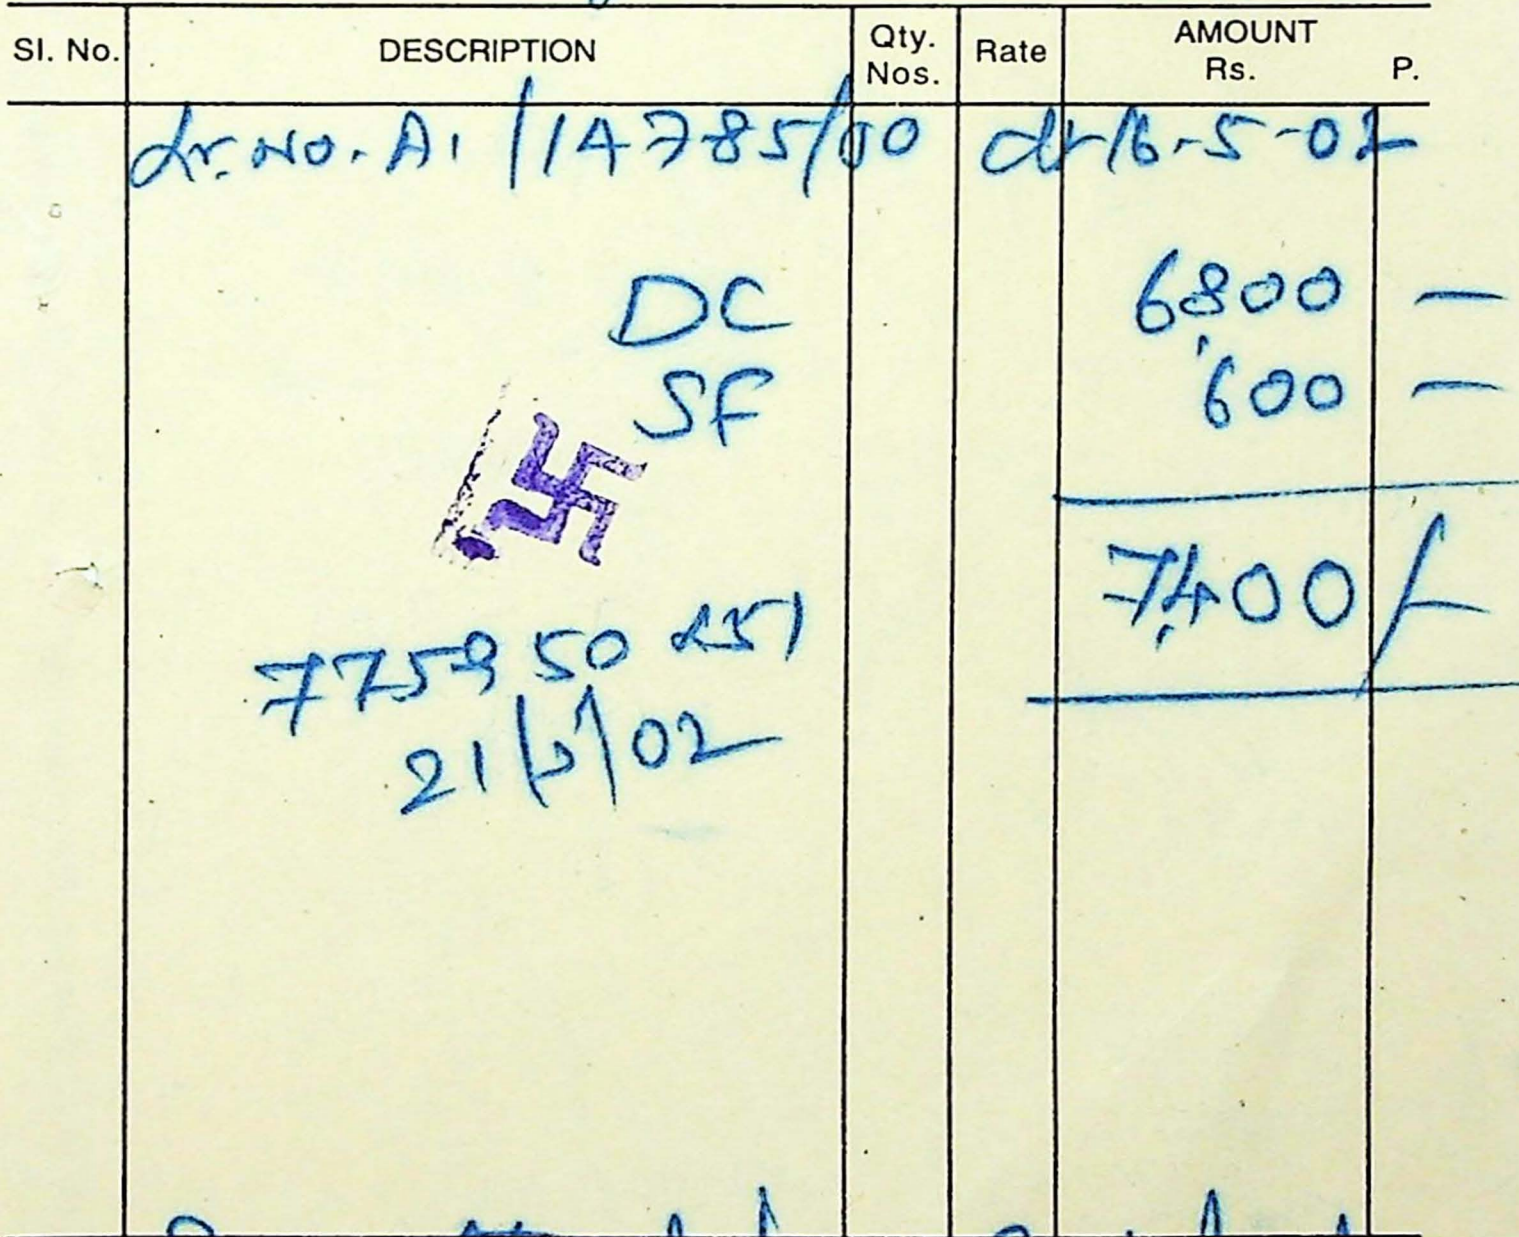 Sl. No. DESCRIPTION Qty. Nos. Rate AMOUNT Rs. P.
Lr. No. A1/14785/00 dt 16-5-02
DC 6800 —
SF 600 —
7,400/-
775950
21/5/02